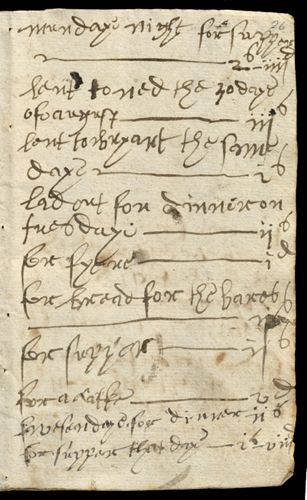 mundaye night for supper
2s iiid
lent to ned the 30 daye
of auguste iiis
lent to bryart the same
daye is
lad out for dinner on
tuesdaye iis
for fyere id
for bread for the hares
for supper is
for a vd
wensendaye for dinner iis
for supper that daye is viiid